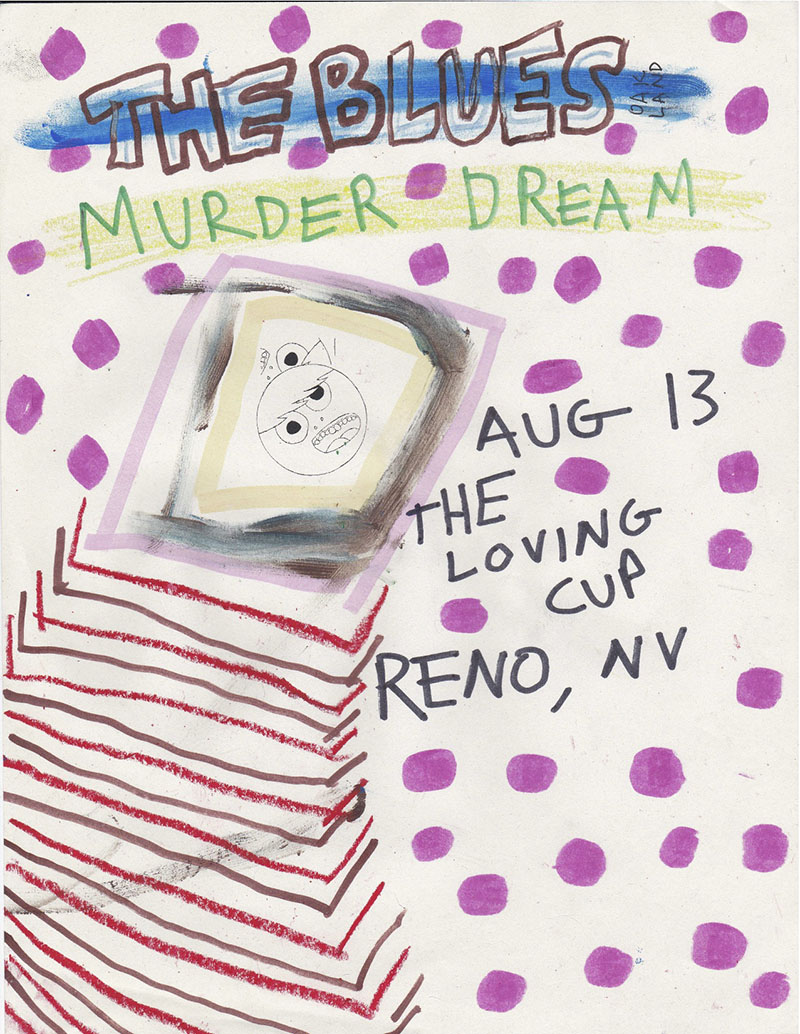 THE BLUES
OAK
LAND
MURDER DREAM
AUG 13
THE
LOVING
CUP
RENO, NV